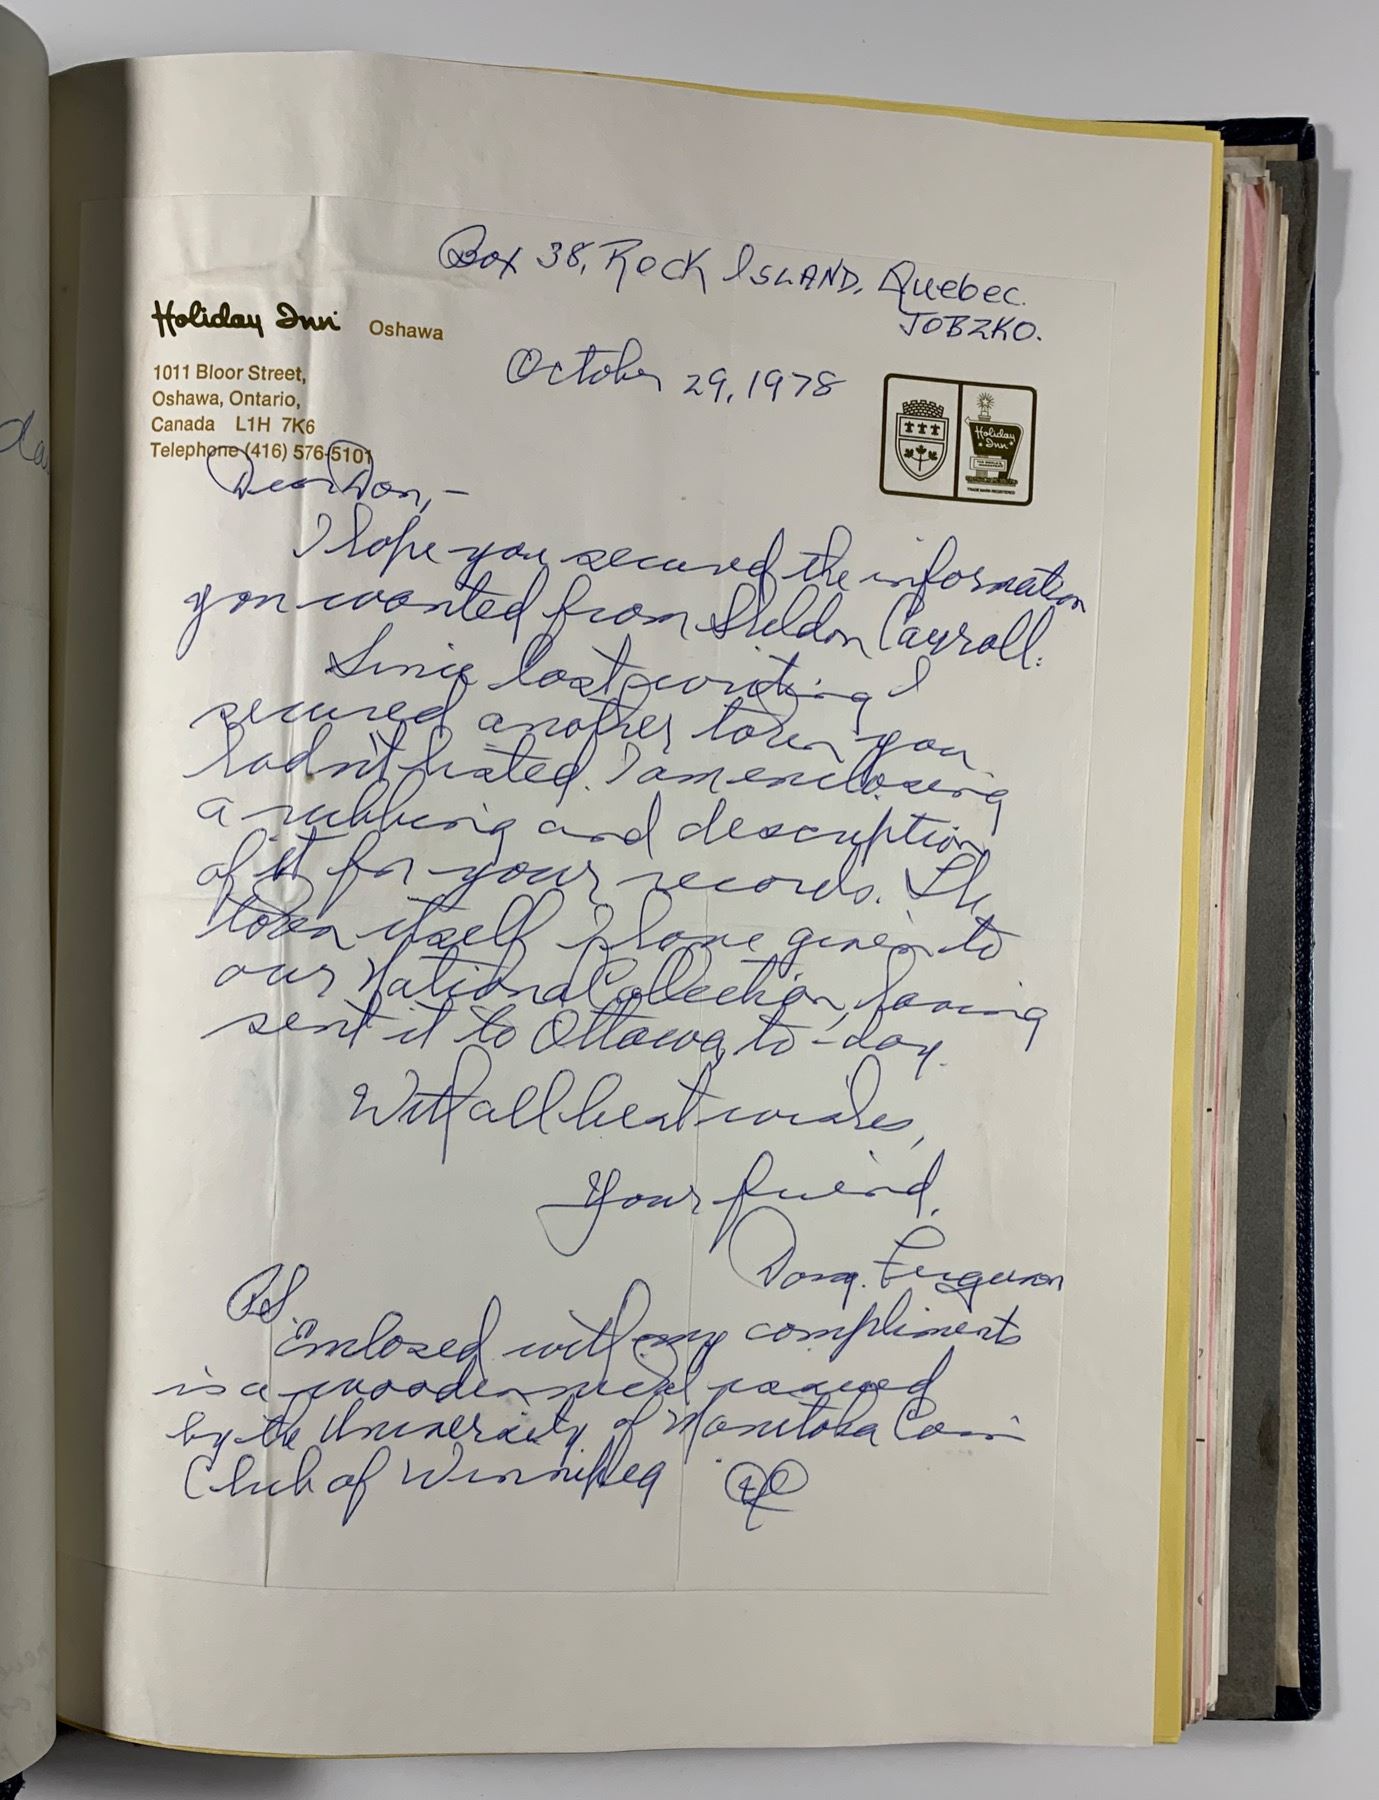 Box 38, Rock Island, Quebec.
J0B2K0.
Holiday Inn Oshawa
1011 Bloor Street,
Oshawa, Ontario,
Canada L1H 7K6
Telephone (416) 576-5101
October 29, 1978
Holiday Inn
Dear Don,-
I hope you secured the information
you wanted from Sheldon Carroll.
Since last writing I
secured another token you
hadn't listed. I am enclosing
a rubbing and description
of it for your records. The
token itself I have given to
our National Collection, having
sent it to Ottawa, to-day.
With all best wishes,
Your friend,
Doug. Ferguson
PS.
Enclosed with my compliments
is a wooden nickel issued
by the University of Manitoba Coin
Club of Winnipeg